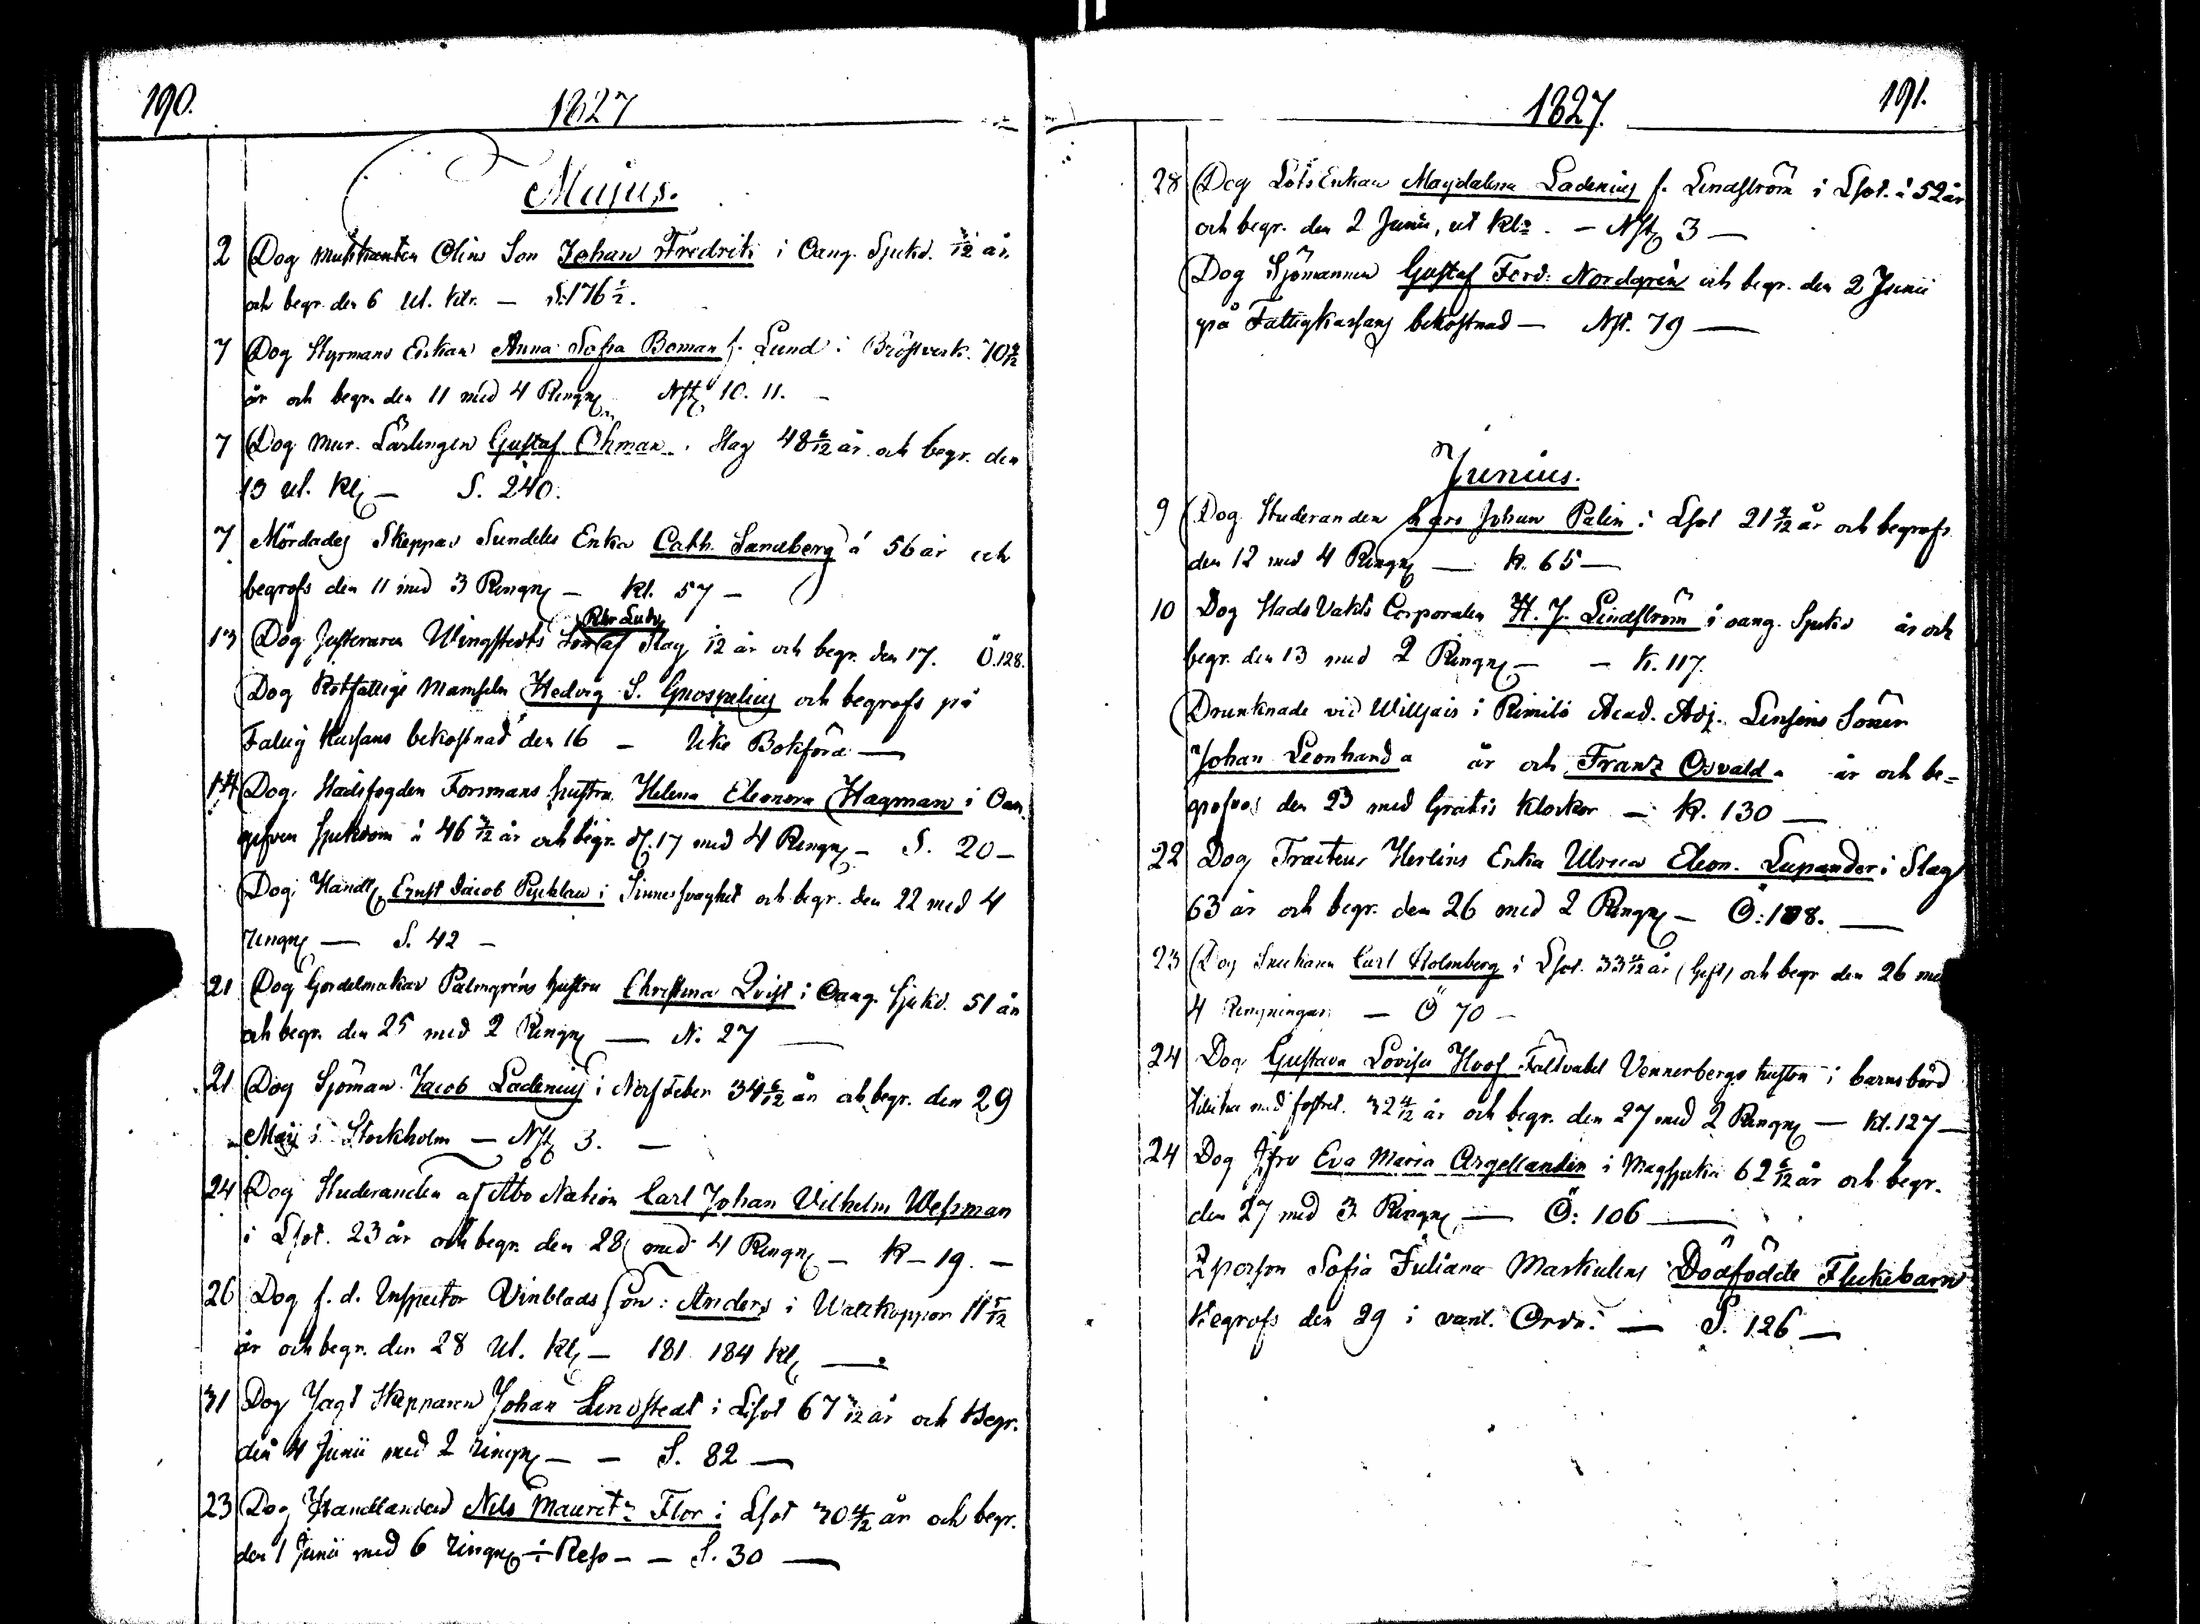 190. 1827
Majus.
2 Dog Musikanten Olins Son Johan Fredrik i Oang. Sjukd. 3/12 år
och begr. den 6 ut. Klr. — S. 176 1/2.
7 Dog Styrmans Enkan Anna Sofia Boman f. Lund i Bröstverk. 70 9/12
år och begr. den 11 med 4 Ringng Nst 10. 11. -
7 Dog Mur. Lärlingen Gustaf Öhman i Slag 48 6/12 år och begr. den
13 ut. Kl. — S. 240.
7 Mördades Skeppar Sundelis Enka Cath. Sandberg á 56 år och
begrofs den 11 med 3 Ringng — Kl. 57 -
Rbr Ludv
13 Dog Justeraren Wingstedts Son af Slag /12 år och begr. den 17. Ö. 128.
Dog Rotfattige Mamseln Hedvig S. Gnospelius och begrofs på
Fattig Kassans bekostnad den 16 — Icke Bokförd —
14 Dog Stadsfogden Forsmans hustru Helena Eleonora Hagman i Oan
gifven sjukdom á 46 /12 år och begr. d. 17 med 4 Ringng — S. 20 -
Dog Handl. Ernst Jacob Pycklau i Sinnessvaghet och begr. den 22 med 4
ringng — S. 42 -
21 Dog Gördelmakar Palmgréns hustru Christina Qvist i Oang. sjukd. 51 år
och begr. den 25 med 2 Ringng — N. 27 —
21 Dog Sjöman Jacob Ladenius i Nerf Feber 34 6/12 år och begr. den 29
Maji i Stockholm — Nst 3. —
24 Dog Studeranden af Åbo Nation Carl Johan Vilhelm Wessman
i Lsot. 23 år och begr. den 28 med 4 Ringng — K — 19. —
26 Dog f. d. Inspector Vinblads son: Anders i Wattkoppor 11 5/12
år och begr. den 28 ut. Kl. — 181 184 Kl. —
31 Dog Jagt Skepparen Johan Lindstedt i Lsot 67 /12 år och Begr.
den 4 Junii med 2 ringng — — S. 82 —
23 Dog Handlanden Nils Mauritz Flor i Lsot 30 4/12 år och begr.
den 1 Junii med 6 ringng — S. 30 —
1827. 191.
28 Dog Lots Enkan Magdalena Ladenius f. Lindström i Lsot. á 52 år
och begr. den 2 Junii, ut Klr. — Nst 3 —
Dog Sjömannen Gustaf Ferd: Nordgrén och begr. den 2 Junii
på Fattigkassans bekostnad — Nst. 79 —
Junius.
9 Dog Studeranden Lars Johan Palin i Lsot 21 /12 år och begrofs
den 12 med 4 Ringng — K. 65 —
10 Dog Stads Vakts Corporalen H. J. Lindström i oang. Sjukd år och
begr. den 13 med 2 Ringng — — K. 117.
Drunknade vid Willjais i Rimito Acad. Adj. Linséns Söner
Johan Leonhard a år och Franz Osvald a år och be=
grofvos den 23 med Gratis Klockor — K. 130 —
22 Dog Tracteur Herlins Enka Ulrica Eleon. Lupander i Slag
63 år och begr. den 26 med 2 Ringng — Ö: 108. —
23 Dog Snickaren Carl Holmberg i Lsot. 33 /12 år (Gift) och begr den 26 me
4 Ringningar — Ö 70 -
24 Dog Gustava Lovisa Hoof Faltvabel Vennerbergs hustru i barnsbörd
tillika med fostret. 32 4/12 år och begr. den 27 med 2 Ringng — Kl. 127 —
24 Dog Jfru Eva Maria Argellander i Magsjuka 62 6/12 år och begr.
den 27 med 3 Ringng — Ö: 106 —
Qpersn Sofia Juliana Markulins Dödfödde Flickebarn
Begrofs den 29 i vanl. Ordn: — S. 126 —